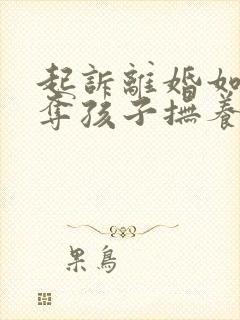 起訴離婚如
奪孩子撫養
果鳥